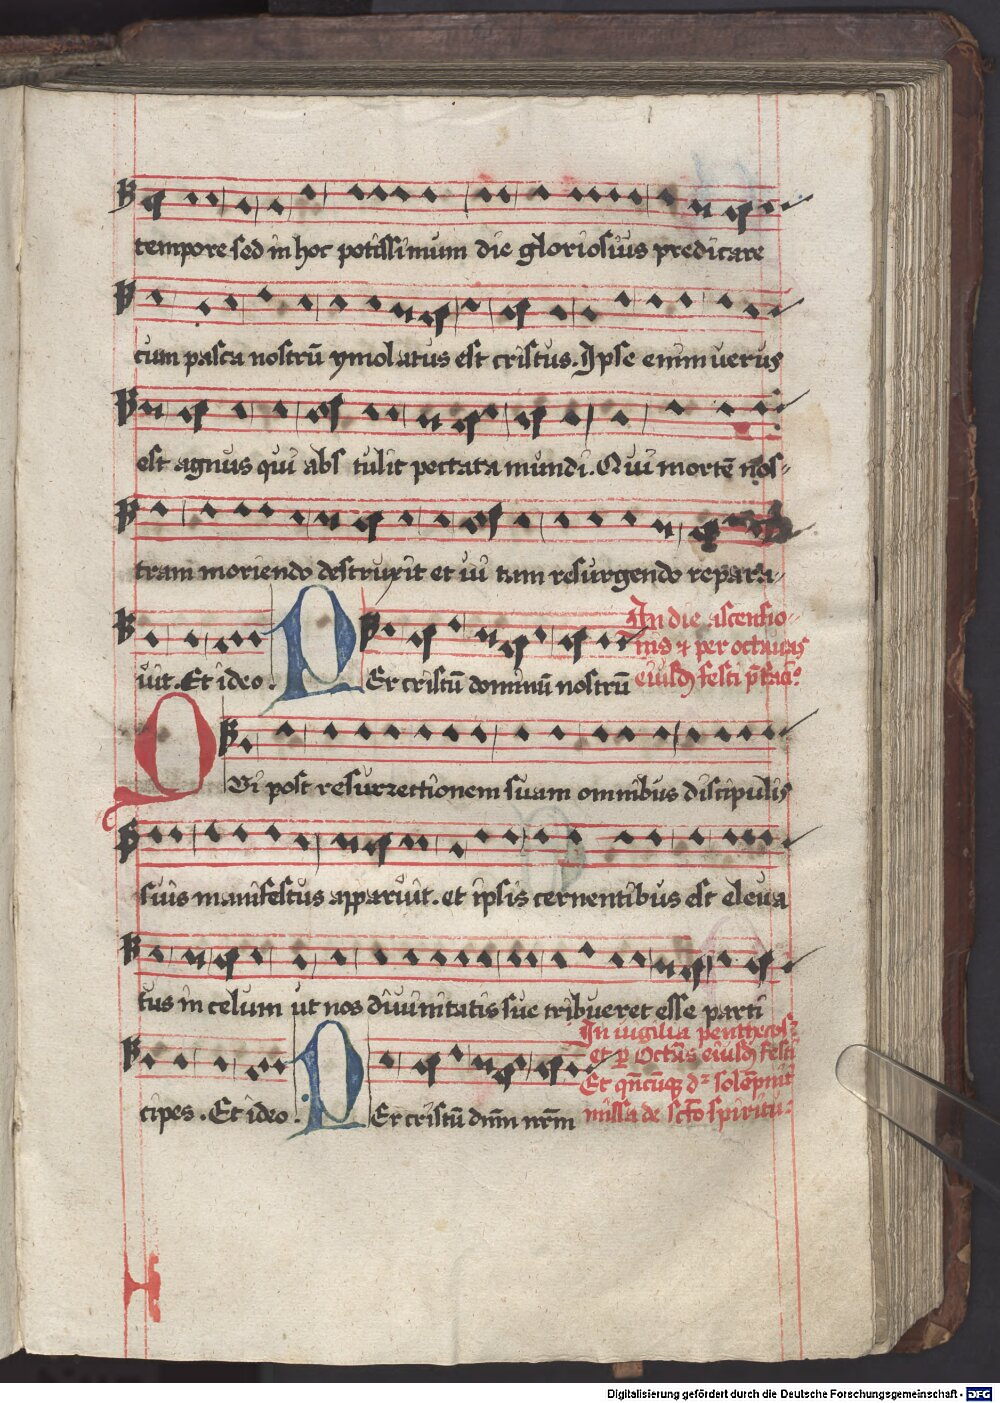 tempore sed in hoc potissimum die gloriosius predicare
cum pasca nostrū ymolatus est cristus. Ipse enim uerus
est agnus qui abs tulit peccata mundi. Qui mortē nos-
tram moriendo destruxit et ui tam resurgendo repara-
uit. Et ideo. PEr cristū dominū nostrū
In die ascensio-
nis et per octauas
eiusdē festi p̄fac̄o
QVi post resurrectionem suam omnibus discipulis
suis manifestus apparuit. et ipsis cernentibus est eleua
tus in celum ut nos diuinitatis sue tribueret esse parti
cipes. Et ideo. PEr cristū dn̄m nr̄m
In uigilia penthecos-
et per Octās eiusdē festi
Et qn̄cūqꝫ dꝛ solēpnit
missa de sctō spiritu:
Digitalisierung gefördert durch die Deutsche Forschungsgemeinschaft - DFG